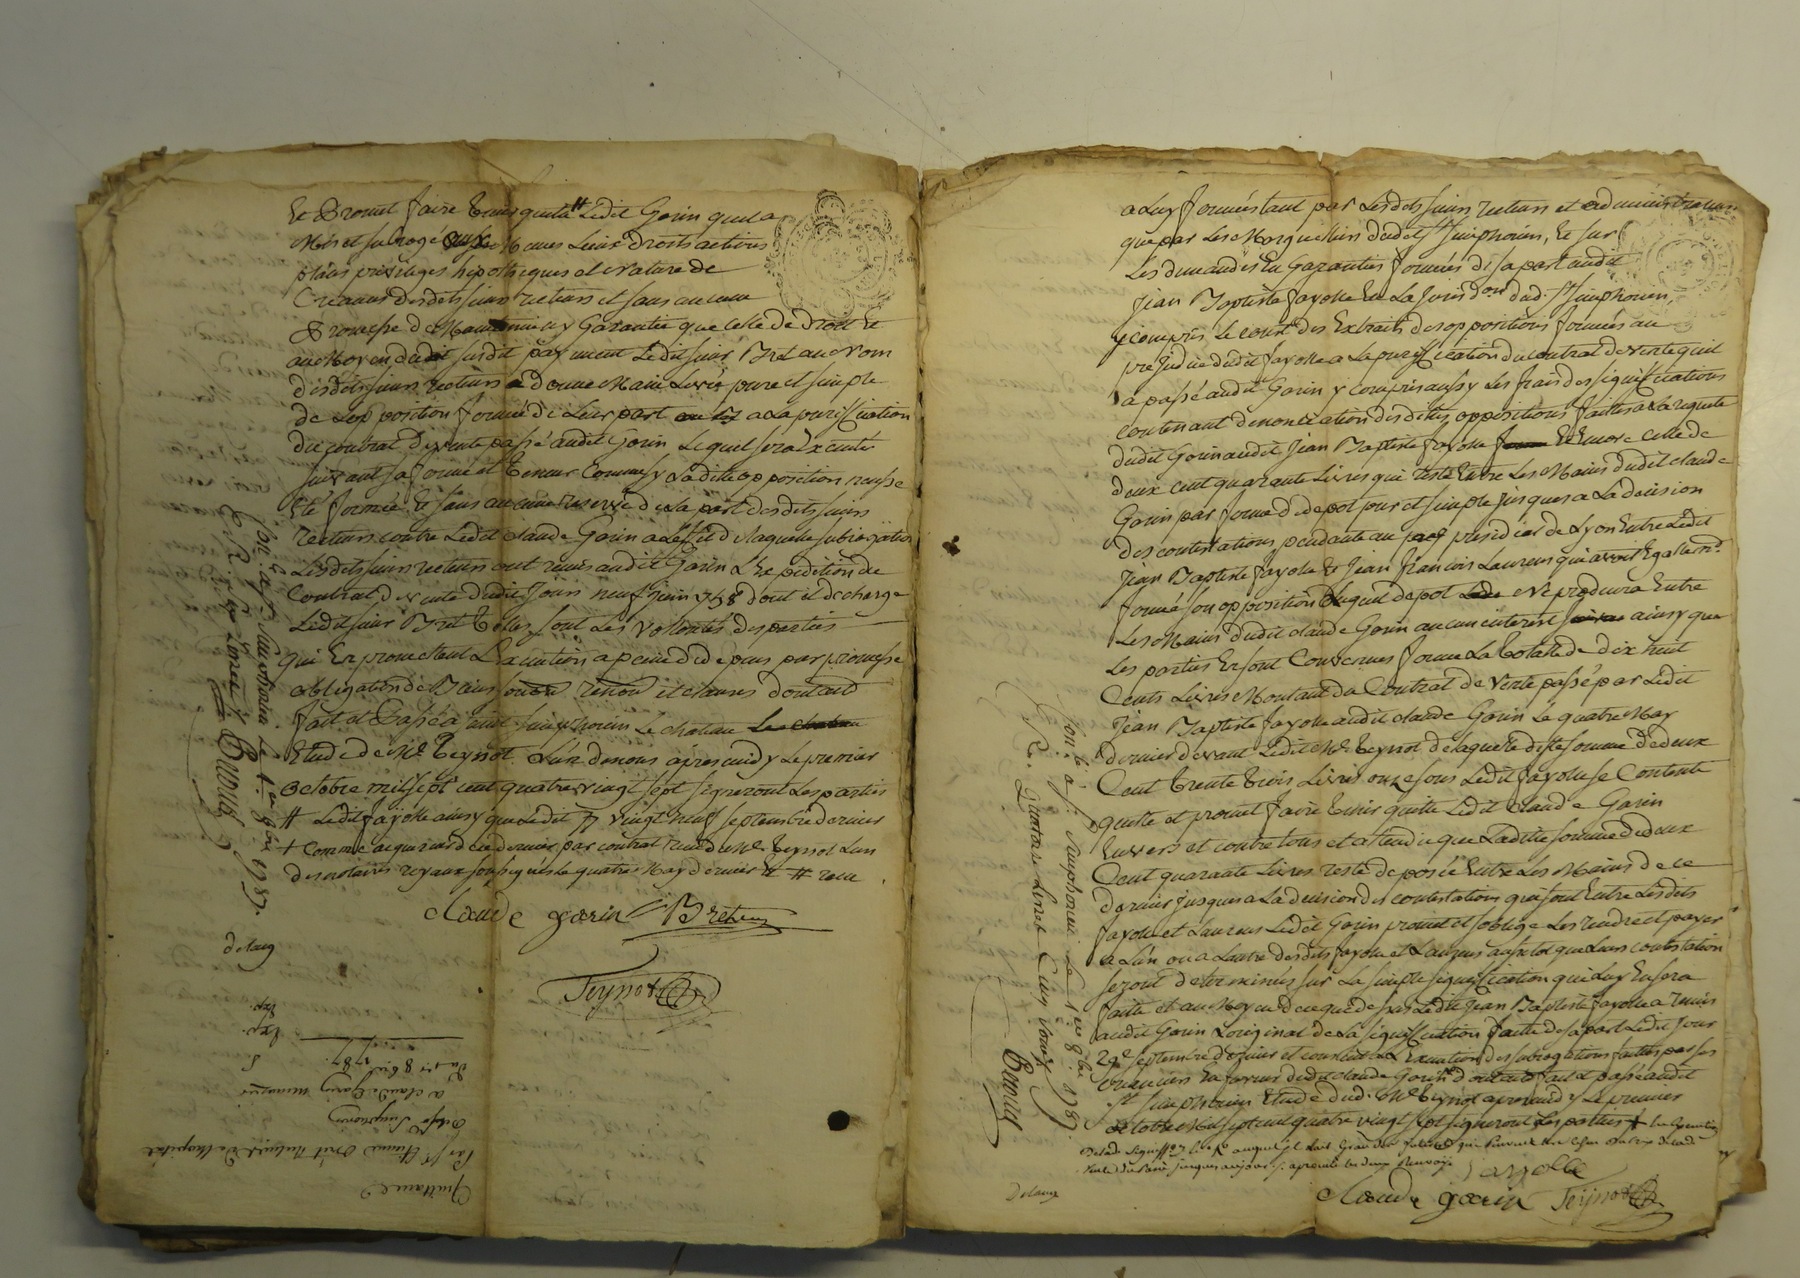 Et Promet faire tenir quitte # Ledit Gorin quil a
Mis et subrogé Leurs droits actions
plaus privileges hipotheques et Nature de
Creances desdits sieurs recteurs et sans aucune
Promesse de Maintenir ny Garantie que Celle de Droit Et
au Moyen dudit susdit payement Ledit sieur Bret au Nom
desdits sieurs recteurs a donné Main Levée pure et simple
de Lopposition formée de Leur part a La purification
du contrat de vente passé audit Gorin Lequel sera Executé
suivant sa forme et teneur Comme sy Ladite opposition neusse
Eté formée Et sans aucune reserve de La part desdits sieurs
recteurs contre Ledit claude Gorin a Leffet de laquelle subrogation
Lesdits sieurs recteurs ont remis audit Gorin LExpedition du
Contrat de vente dudit Jour neuf Juin 1758 dont il decharge
Ledit sieur Bret telles sont Les volontés des parties
qui En promettent Lexecution a peine de depens par promesse
obligation de Biens renon et clauses dont acte
fait et Passé a saint simphorien Le chateau
Etude de Me Teynot Lun de nous apres midy Le premier
octobre mil sept cent quatre vingt sept signeront Les parties
# Ledit fayolle ainsy que Ledit vingt neuf septembre dernier
+ Comme acquereur de ce dernier par contrat recu de Me Teynot Lun
des notaires royaux soussignés Le quatre May dernier # # recu
claude gorin Bret
Teynot
delaug
Con.lé a St Simphorien Le 1er 8bre 1787.
Quittance
Par sr Bret Recteur de Lhopital
de St Simphorien
a claude Gorin
Du 1er 8bre 1787.
Exp.
Exp.
a Luy formées tant par Lesdits sieurs recteurs et administrateurs
que par Les Marguilliers dudit St simphorien, Et sur
Les demandes En Garanties formées de sa part audit
Jean Baptiste fayolle En La Jurisdon dud. St simphorien,
y compris Le cout des Extraits des oppositions formées au
prejudice dudit fayolle a La purification du contrat de vente quil
a passé audit Gorin y compris aussy Les frais des significations
contenant denonciation desdites oppositions faites a La requete
dudit Gorin audit Jean Baptiste fayolle Et Encore Celle de
deux cent quarante Livres qui reste Entre Les Mains dudit claude
Gorin par forme de depot pur et simple jusques a La decision
des contestations pendantes au presidial de Lyon Entre Ledit
Jean Baptiste fayolle Et Jean francois Laurens qui avoit Egalemt
formé son opposition Lequel depot Ne produira Entre
Les Mains dudit claude Gorin aucun interest ainsy que
Les parties En sont Convenues forme La totalité de dix huit
Cents Livres Montant du Contrat de vente passé par Ledit
Jean Baptiste fayolle audit claude Gorin Le quatre May
dernier devant Ledit Me Teynot de laquelle dite somme de deux
Cent trente trois Livres onze sous Ledit fayolle se Contente
quitte et promet faire tenir quitte Ledit claude Gorin
Envers et contre tous et attendu que Ladite somme de deux
Cent quarante Livres reste deposée Entre Les Mains de ce
dernier jusques a La decision des contestations qui sont Entre Lesdits
fayolle et Laurens Ledit Gorin promet et soblige Les rendre et payer
a Lun ou a Lautre desdits fayolle et Laurens aussitot que Leurs contestation
seront determinées sur La simple signification qui Luy En sera
faite et au Moyen de ce que dessus Ledit Jean Baptiste fayolle a remis
audit Gorin Loriginal de La signification faite de sa part Ledit Jour
29e septembre dernier et consent a LExecution des subrogations faites par ses
creanciers En faveur dudit claude Gorin dont acte fait et passé audit
St simphorien Etude dud. Me Teynot apres midy Le premier
octobre Mil sept cent quatre vingt sept signeront Les parties
fayolle
claude gorin Teynot
Delaug
Con.lé a St Simphorien Le 1er 8bre 1787.